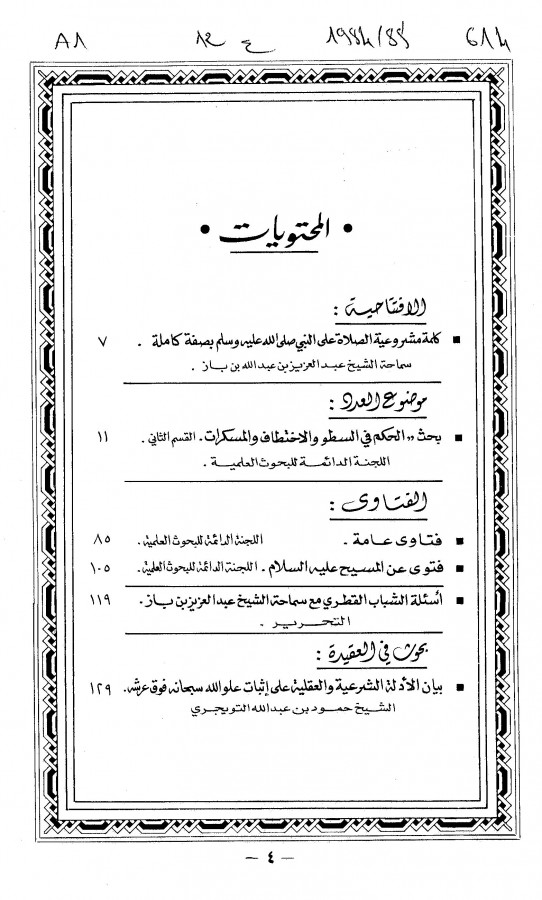 A1 12 ع 1984/85 614
• المحتويات •
الافتتاحية :
▪ كلمة مشروعية الصلاة على النبي صلى الله عليه وسلم بصفة كاملة . ٧
سماحة الشيخ عبد العزيز بن عبد الله بن باز .
موضوع العدد :
▪ بحث „ الحكم في السطو والاختطاف والمسكرات . القسم الثاني . ١١
اللجنة الدائمة للبحوث العلمية .
الفتاوى :
▪ فتاوى عامة . اللجنة الدائمة للبحوث العلمية . ٨٥
▪ فتوى عن المسيح عليه السلام . اللجنة الدائمة للبحوث العلمية . ١٠٥
▪ أسئلة الشباب القطري مع سماحة الشيخ عبد العزيز بن باز . ١١٩
التحرير .
بحوث في العقيدة :
▪ بيان الأدلة الشرعية والعقلية على إثبات علو الله سبحانه فوق عرشه . ١٢٩
الشيخ حمود بن عبد الله التويجري
– ٤ –